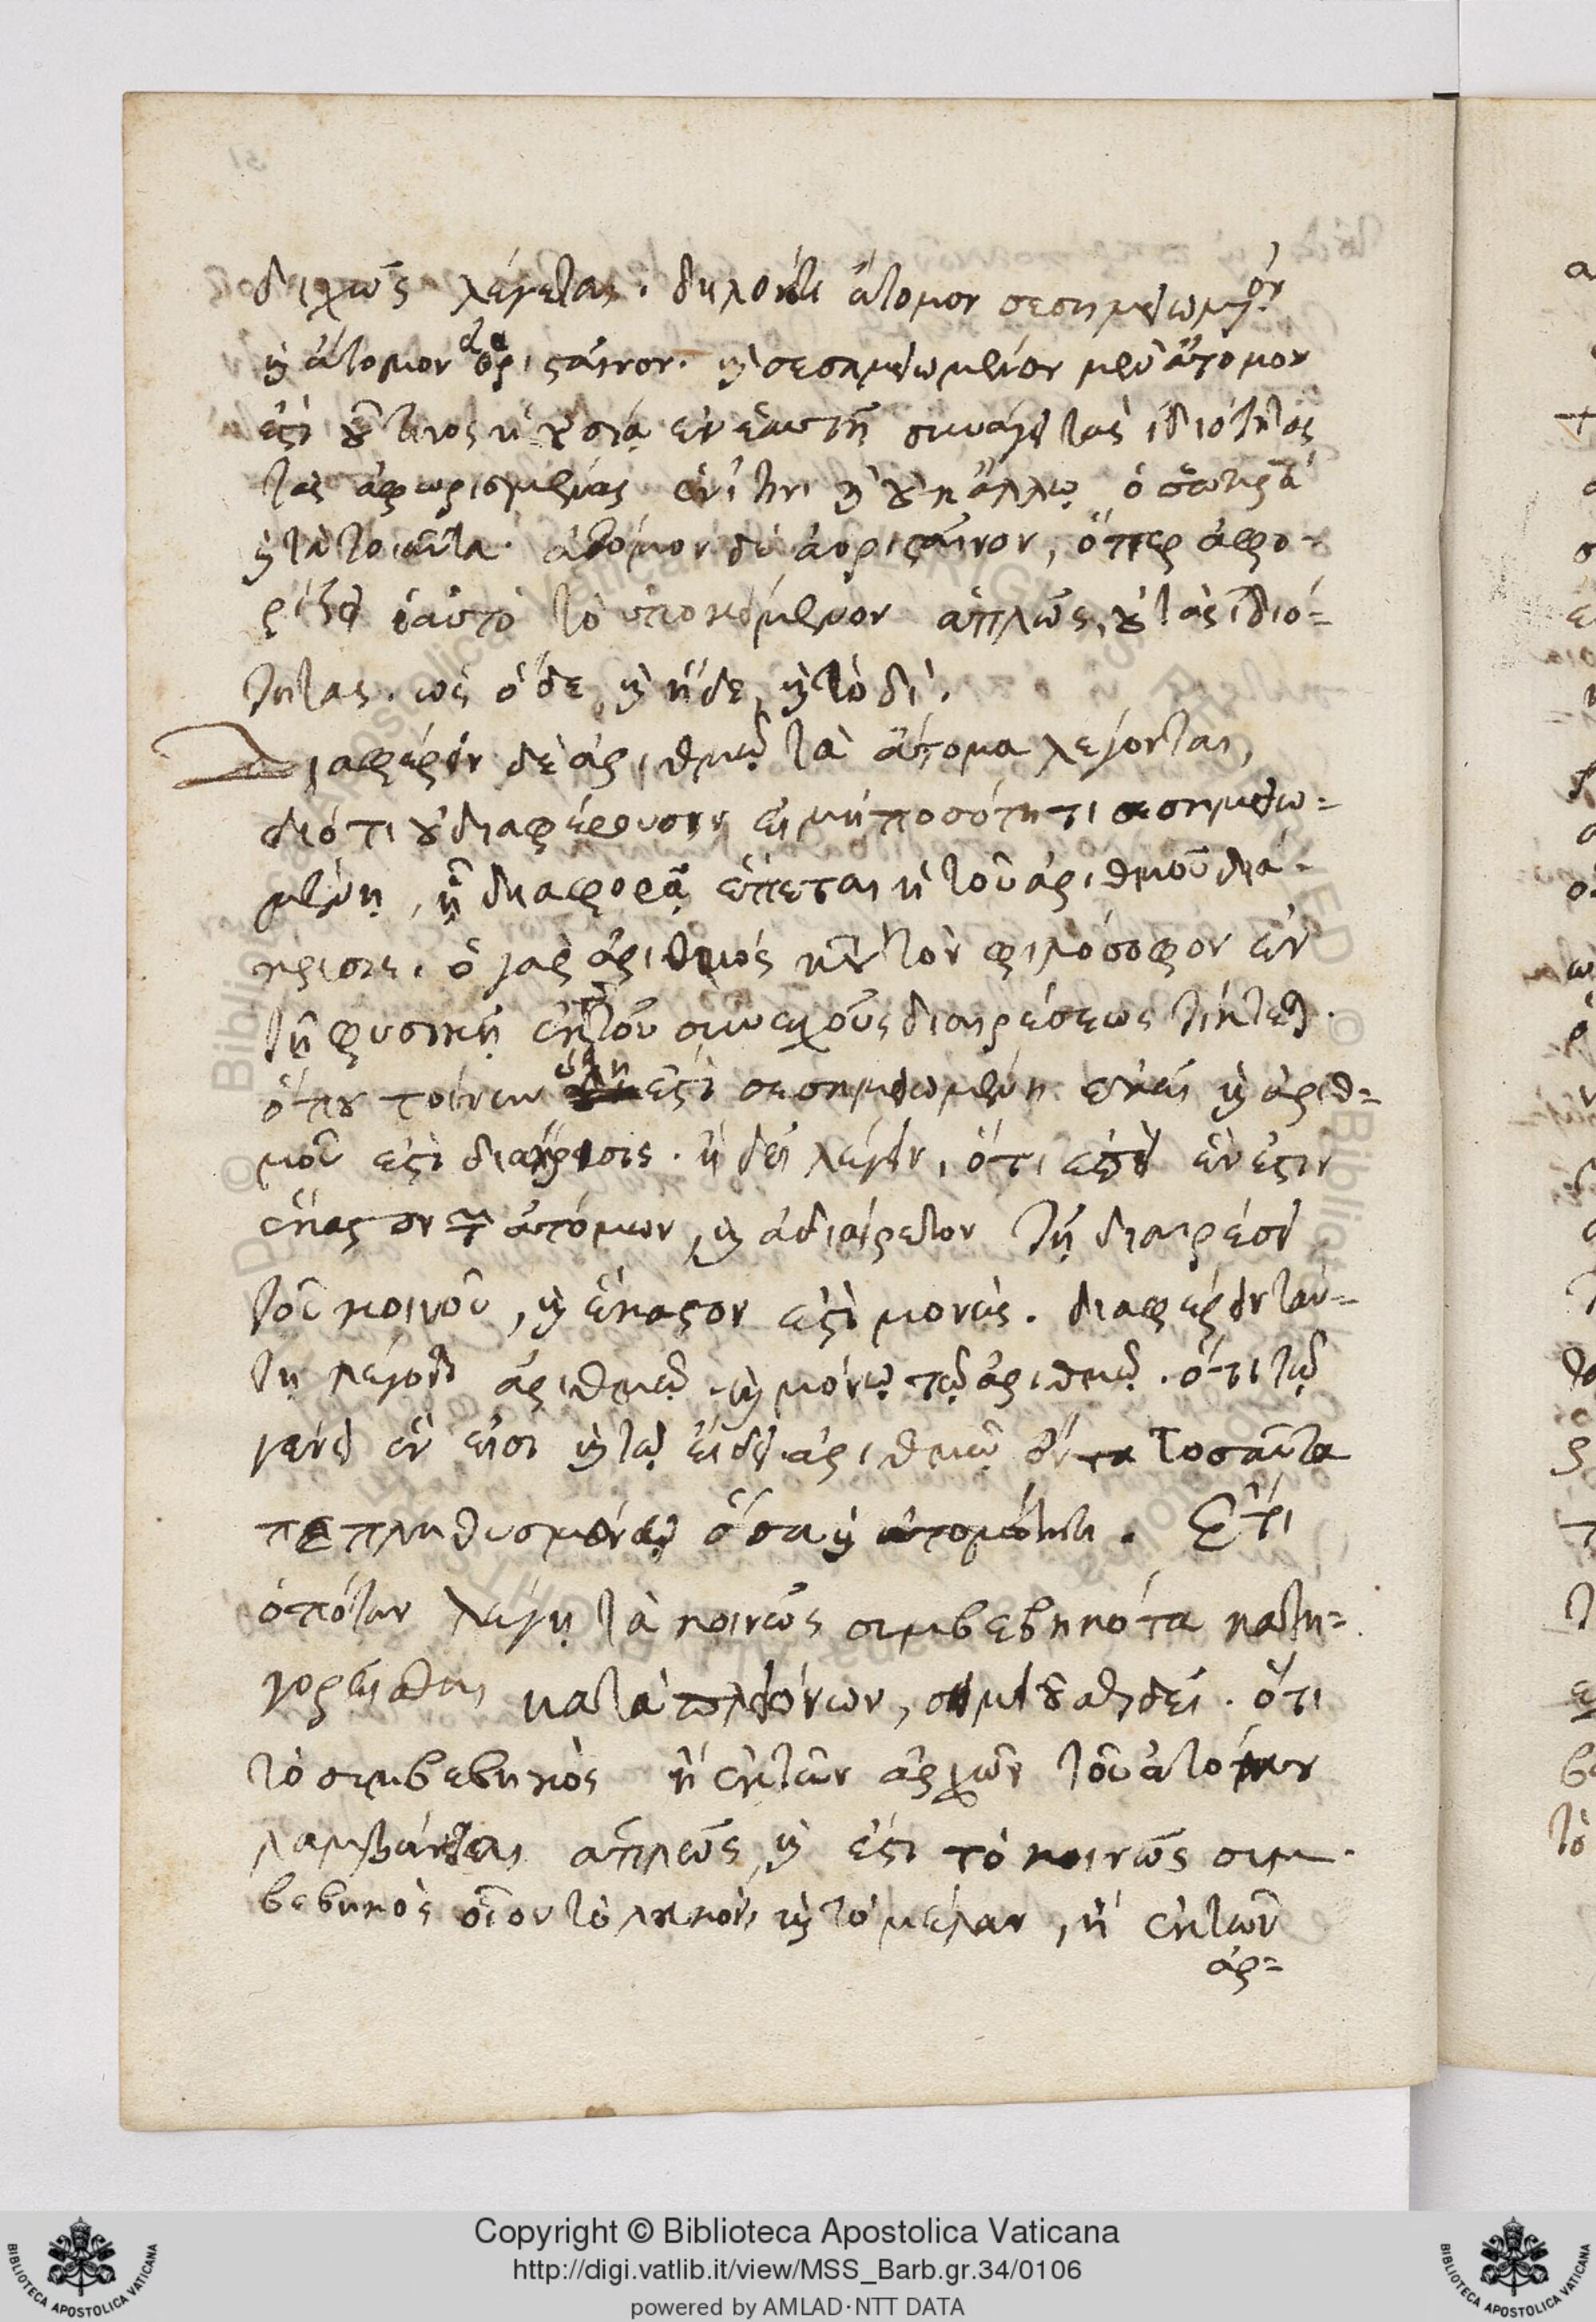 διχῶς λέγεται. δηλονότι ἄτομον σεσημειωμένον
καὶ ἄτομον ἀόρισταινον. καὶ σεσημειωμένον μὲν ἄτομον
ἐστὶ οὗτινος ἡ οὐσία ἐν ἑαυτῇ συνάγει τὰς ἰδιότητας
τὰς ἀφωρισμένας ἑνί τινι καὶ οὐκ ἄλλῳ ὁ σωκρά
καὶ τὰ τοιαῦτα. ἄτομον δὲ ἀορισταῖνον, ὅπερ ἀφο-
ρίζει ἑαυτὸ τὸ ὑποκείμενον ἁπλῶς, οὐ τὰς ἰδιό-
τητας. ὡς ὅδε, καὶ ἥδε, καὶ τὸ δί.
Διαφέρειν δὲ ἀριθμῷ τὰ ἄτομα λέγονται,
διότι οὐ διαφέρουσιν εἰ μὴ ποσότητι σεσημειω-
μένῃ, ᾗ διαφορᾷ ἕπεται ἡ τοῦ ἀριθμοῦ διά-
κρισις. ὁ γὰρ ἀριθμός κατὰ τὸν φιλόσοφον ἐν
τῇ φυσικῇ ἐκ τῆς τοῦ συνεχοῦς διαιρέσεως τίκτεται.
ὅπου τοίνυν ὕλη ἐστὶ σεσημειωμένη ἐκεῖ καὶ ἀριθ-
μοῦ ἐστὶ διαίρεσις. ἢ δεῖ λέγειν, ὅτι ἐπεὶ ἕν ἐστιν
ἕκαστον τῶν ἀτόμων, καὶ ἀδιαίρετον τῇ διαιρέσει
τοῦ κοινοῦ, καὶ ἕκαστον ἐστὶ μονάς. διαφέρειν ταύ-
τῃ λέγονται ἀριθμῷ, καὶ μόνῳ τῷ ἀριθμῷ. ὅτι τῷ
γένει ἕν εἰσι καὶ τῷ εἴδει ἀριθμῷ ὄντα τοσαῦτα
πεπληθυσμένα ὅσα καὶ ἀτομότητι. Ἔτι
ὁπόταν λέγῃ τὰ κοινῶς συμβεβηκότα κατη-
γορεῖσθαι κατὰ πλειόνων, σημειοῦσθαι δεῖ. ὅτι
τὸ συμβεβηκὸς ἢ ἐκ τῶν ἀρχῶν τοῦ ἀτόμου
λαμβάνεται ἁπλῶς, καὶ ἐστι τὸ κοινῶς συμ-
βεβηκὸς οἷον τὸ λευκὸν, καὶ τὸ μέλαν, ἢ ἐκ τῶν
ἀρ-
Copyright © Biblioteca Apostolica Vaticana
http://digi.vatlib.it/view/MSS_Barb.gr.34/0106
powered by AMLAD·NTT DATA